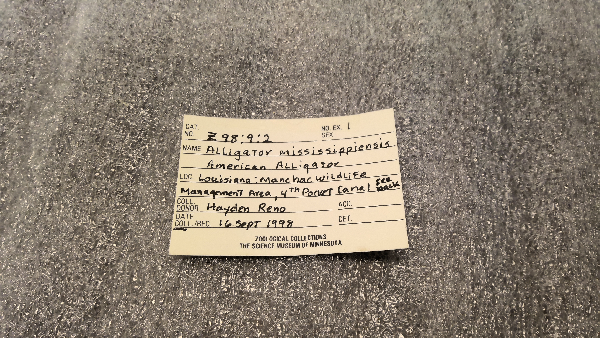 CAT. NO. Z98:9:2 NO. EX. 1 SEX
NAME Alligator mississippiensis
American Alligator
LOC. Louisiana: Manchac Wildlife
Management Area, 4th Power Canal see back
COLL. DONOR Hayden Reno ACC.
DATE COLL./REC. 16 Sept 1998 DET.
ZOOLOGICAL COLLECTIONS
THE SCIENCE MUSEUM OF MINNESOTA